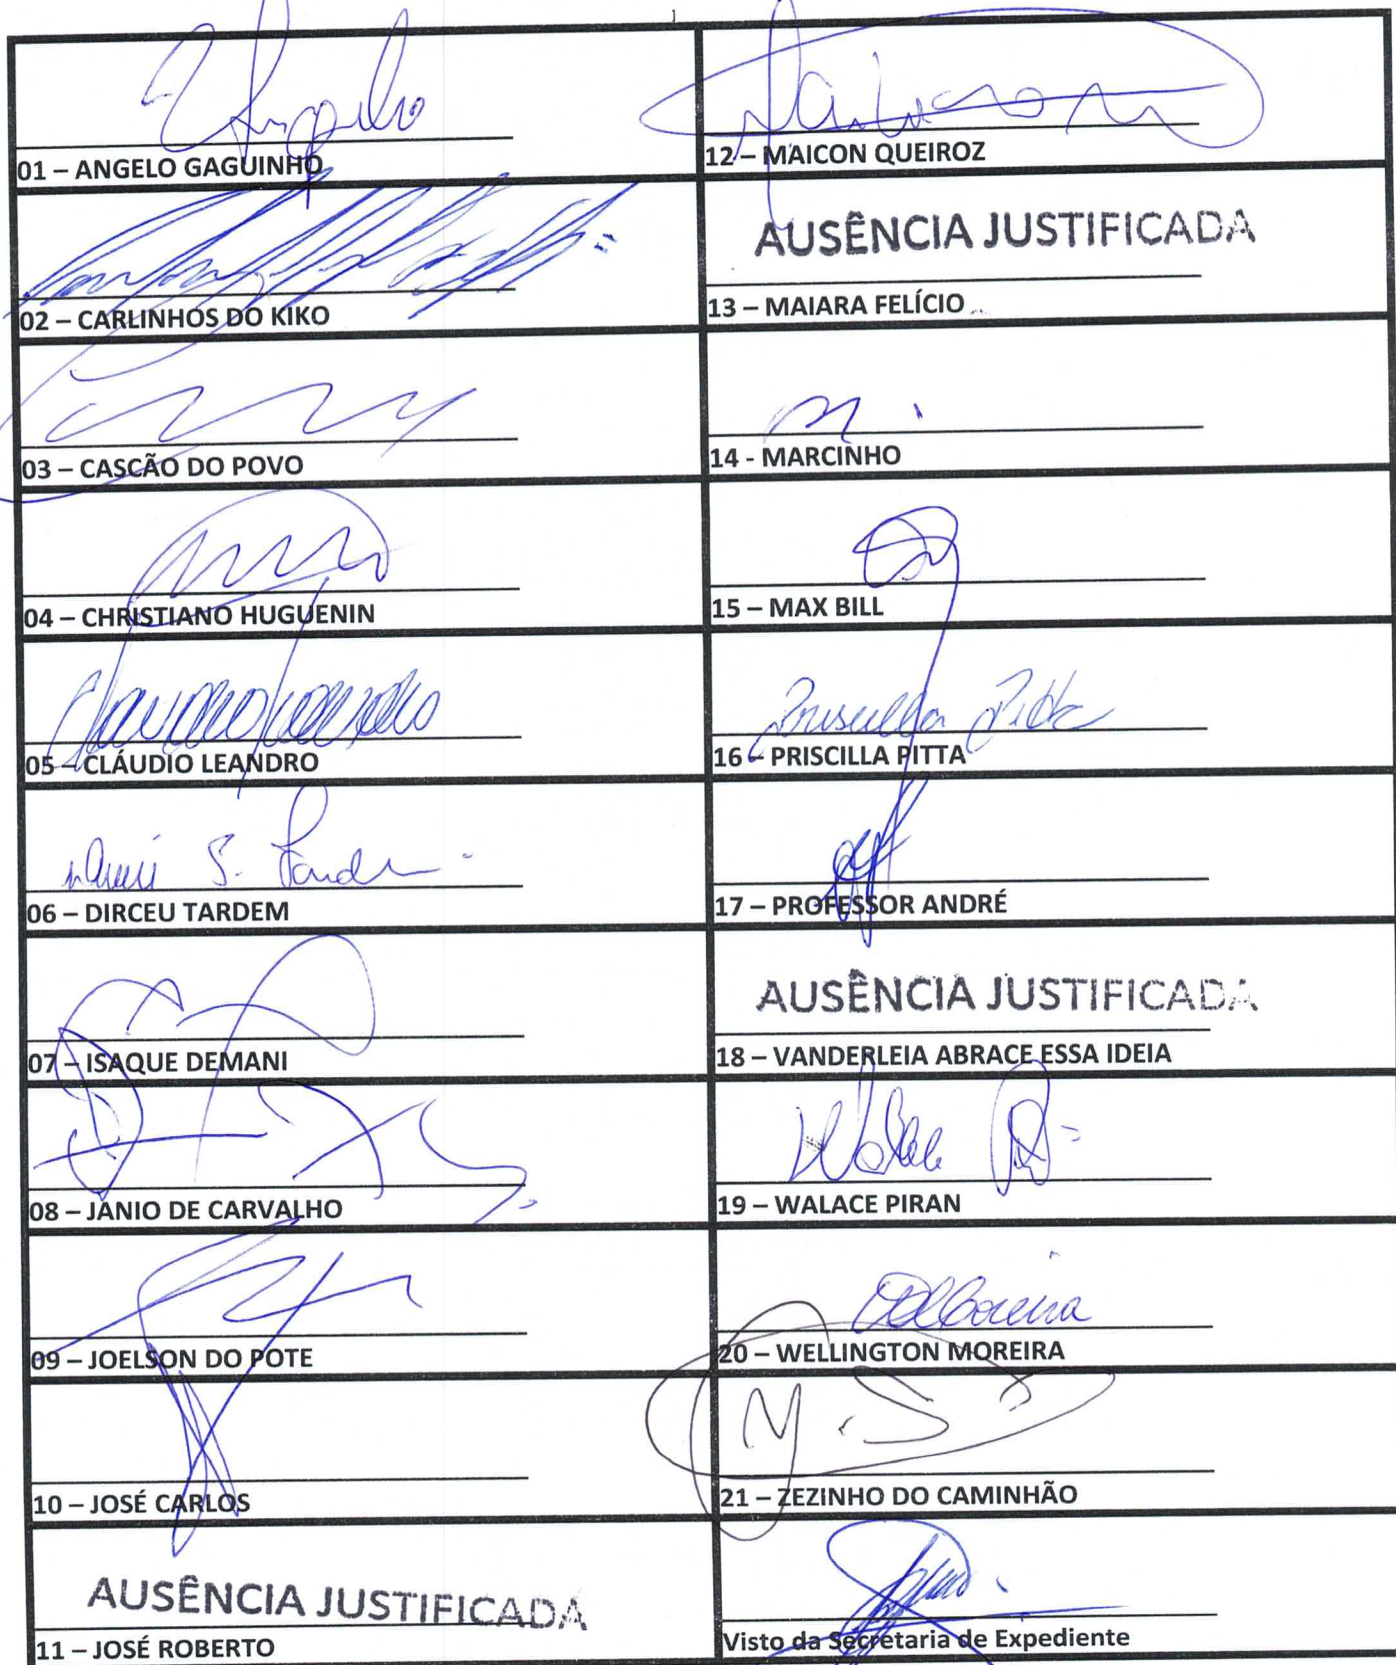 Angelo
01 – ANGELO GAGUINHO
02 – CARLINHOS DO KIKO
03 – CASCÃO DO POVO
04 – CHRISTIANO HUGUENIN
05 – CLÁUDIO LEANDRO
06 – DIRCEU TARDEM
07 – ISAQUE DEMANI
08 – JANIO DE CARVALHO
09 – JOELSON DO POTE
10 – JOSÉ CARLOS
AUSÊNCIA JUSTIFICADA
11 – JOSÉ ROBERTO
12 – MAICON QUEIROZ
AUSÊNCIA JUSTIFICADA
13 – MAIARA FELÍCIO
14 - MARCINHO
15 – MAX BILL
Priscilla Pitta
16 – PRISCILLA PITTA
17 – PROFESSOR ANDRÉ
AUSÊNCIA JUSTIFICADA
18 – VANDERLEIA ABRACE ESSA IDEIA
Walace
19 – WALACE PIRAN
20 – WELLINGTON MOREIRA
21 – ZEZINHO DO CAMINHÃO
Visto da Secretaria de Expediente